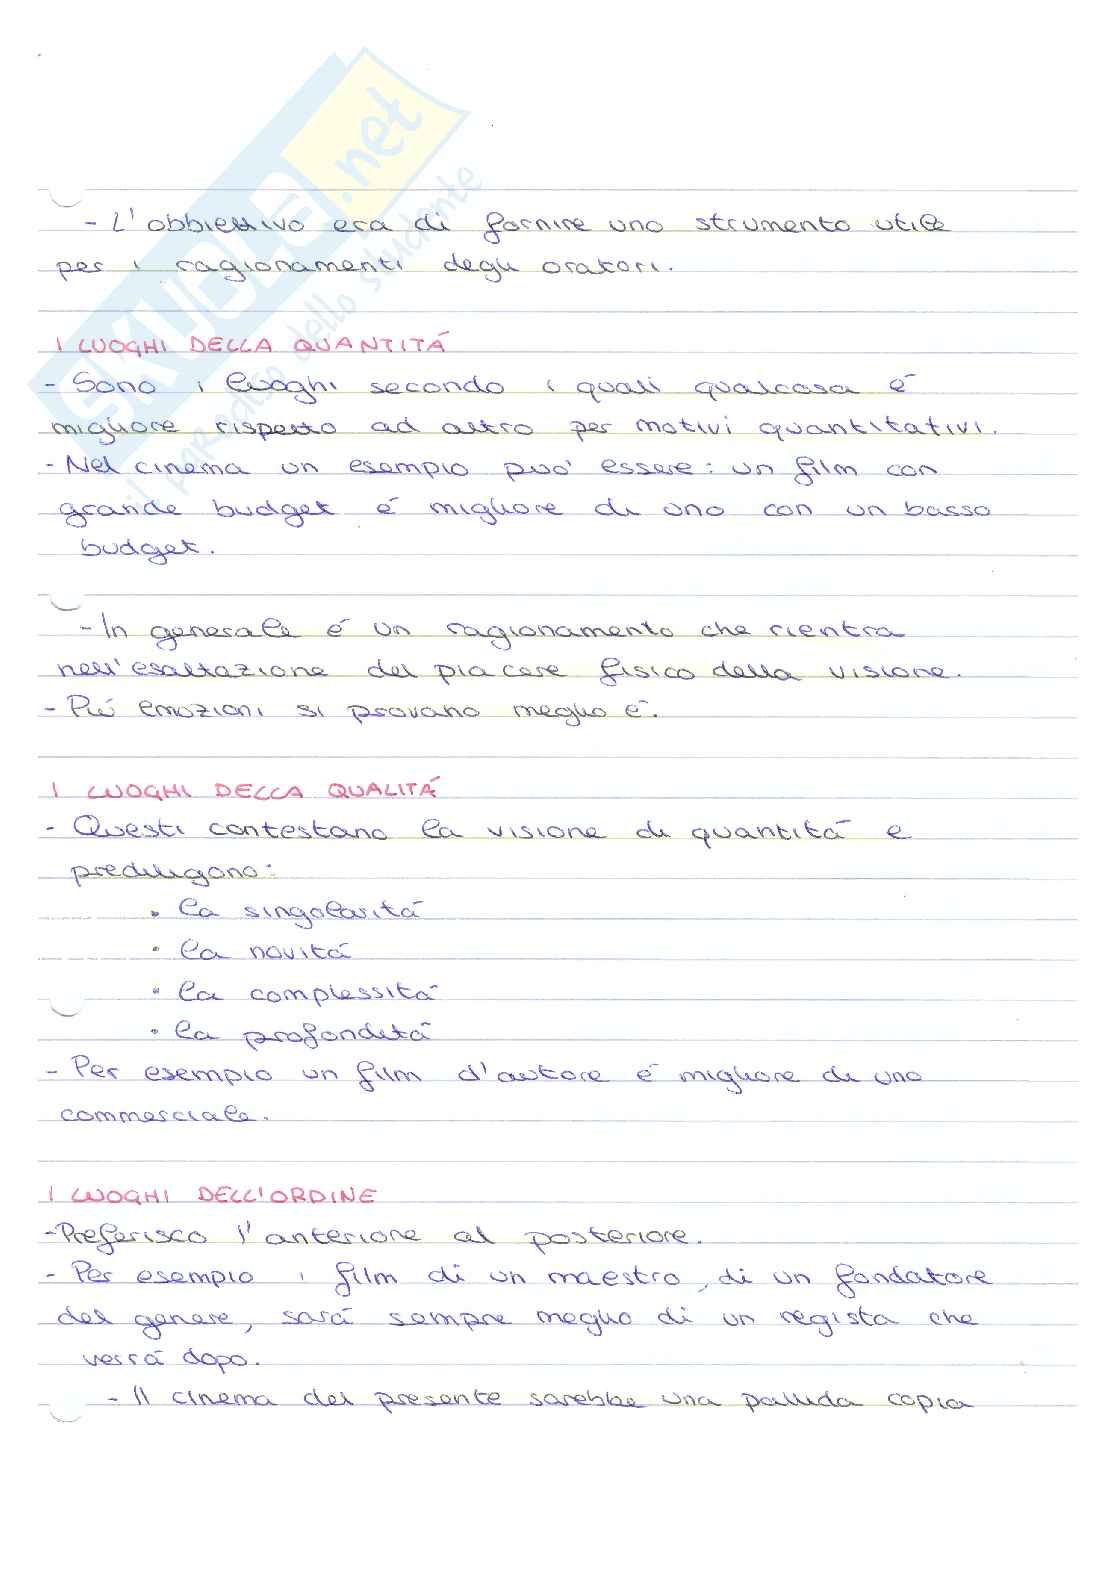 SKUOLA.net
il paradiso dello studente
- L'obbiettivo era di fornire uno strumento utile
per i ragionamenti degli oratori.
I LUOGHI DELLA QUANTITÁ
- Sono i luoghi secondo i quali qualcosa é
migliore rispetto ad altro per motivi quantitativi.
- Nel cinema un esempio può essere: un film con
grande budget é migliore di uno con un basso
budget.
- In generale é un ragionamento che rientra
nell'esaltazione del piacere fisico della visione.
- Piú emozioni si provano meglio é.
I LUOGHI DELLA QUALITÁ
- Questi contestano la visione di quantitá e
prediligono:
• la singolaritá
• la novitá
• la complessitá
• la profonditá
- Per esempio un film d'autore é migliore di uno
commerciale.
I LUOGHI DELL'ORDINE
- Preferisco l'anteriore al posteriore.
- Per esempio i film di un maestro, di un fondatore
del genere, sará sempre meglio di un regista che
verrá dopo.
- Il cinema del presente sarebbe una pallida copia